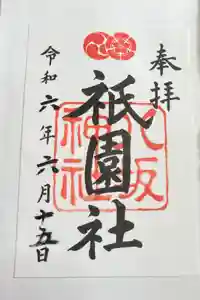 奉拝
八坂神社
祇園社
令和六年六月十五日